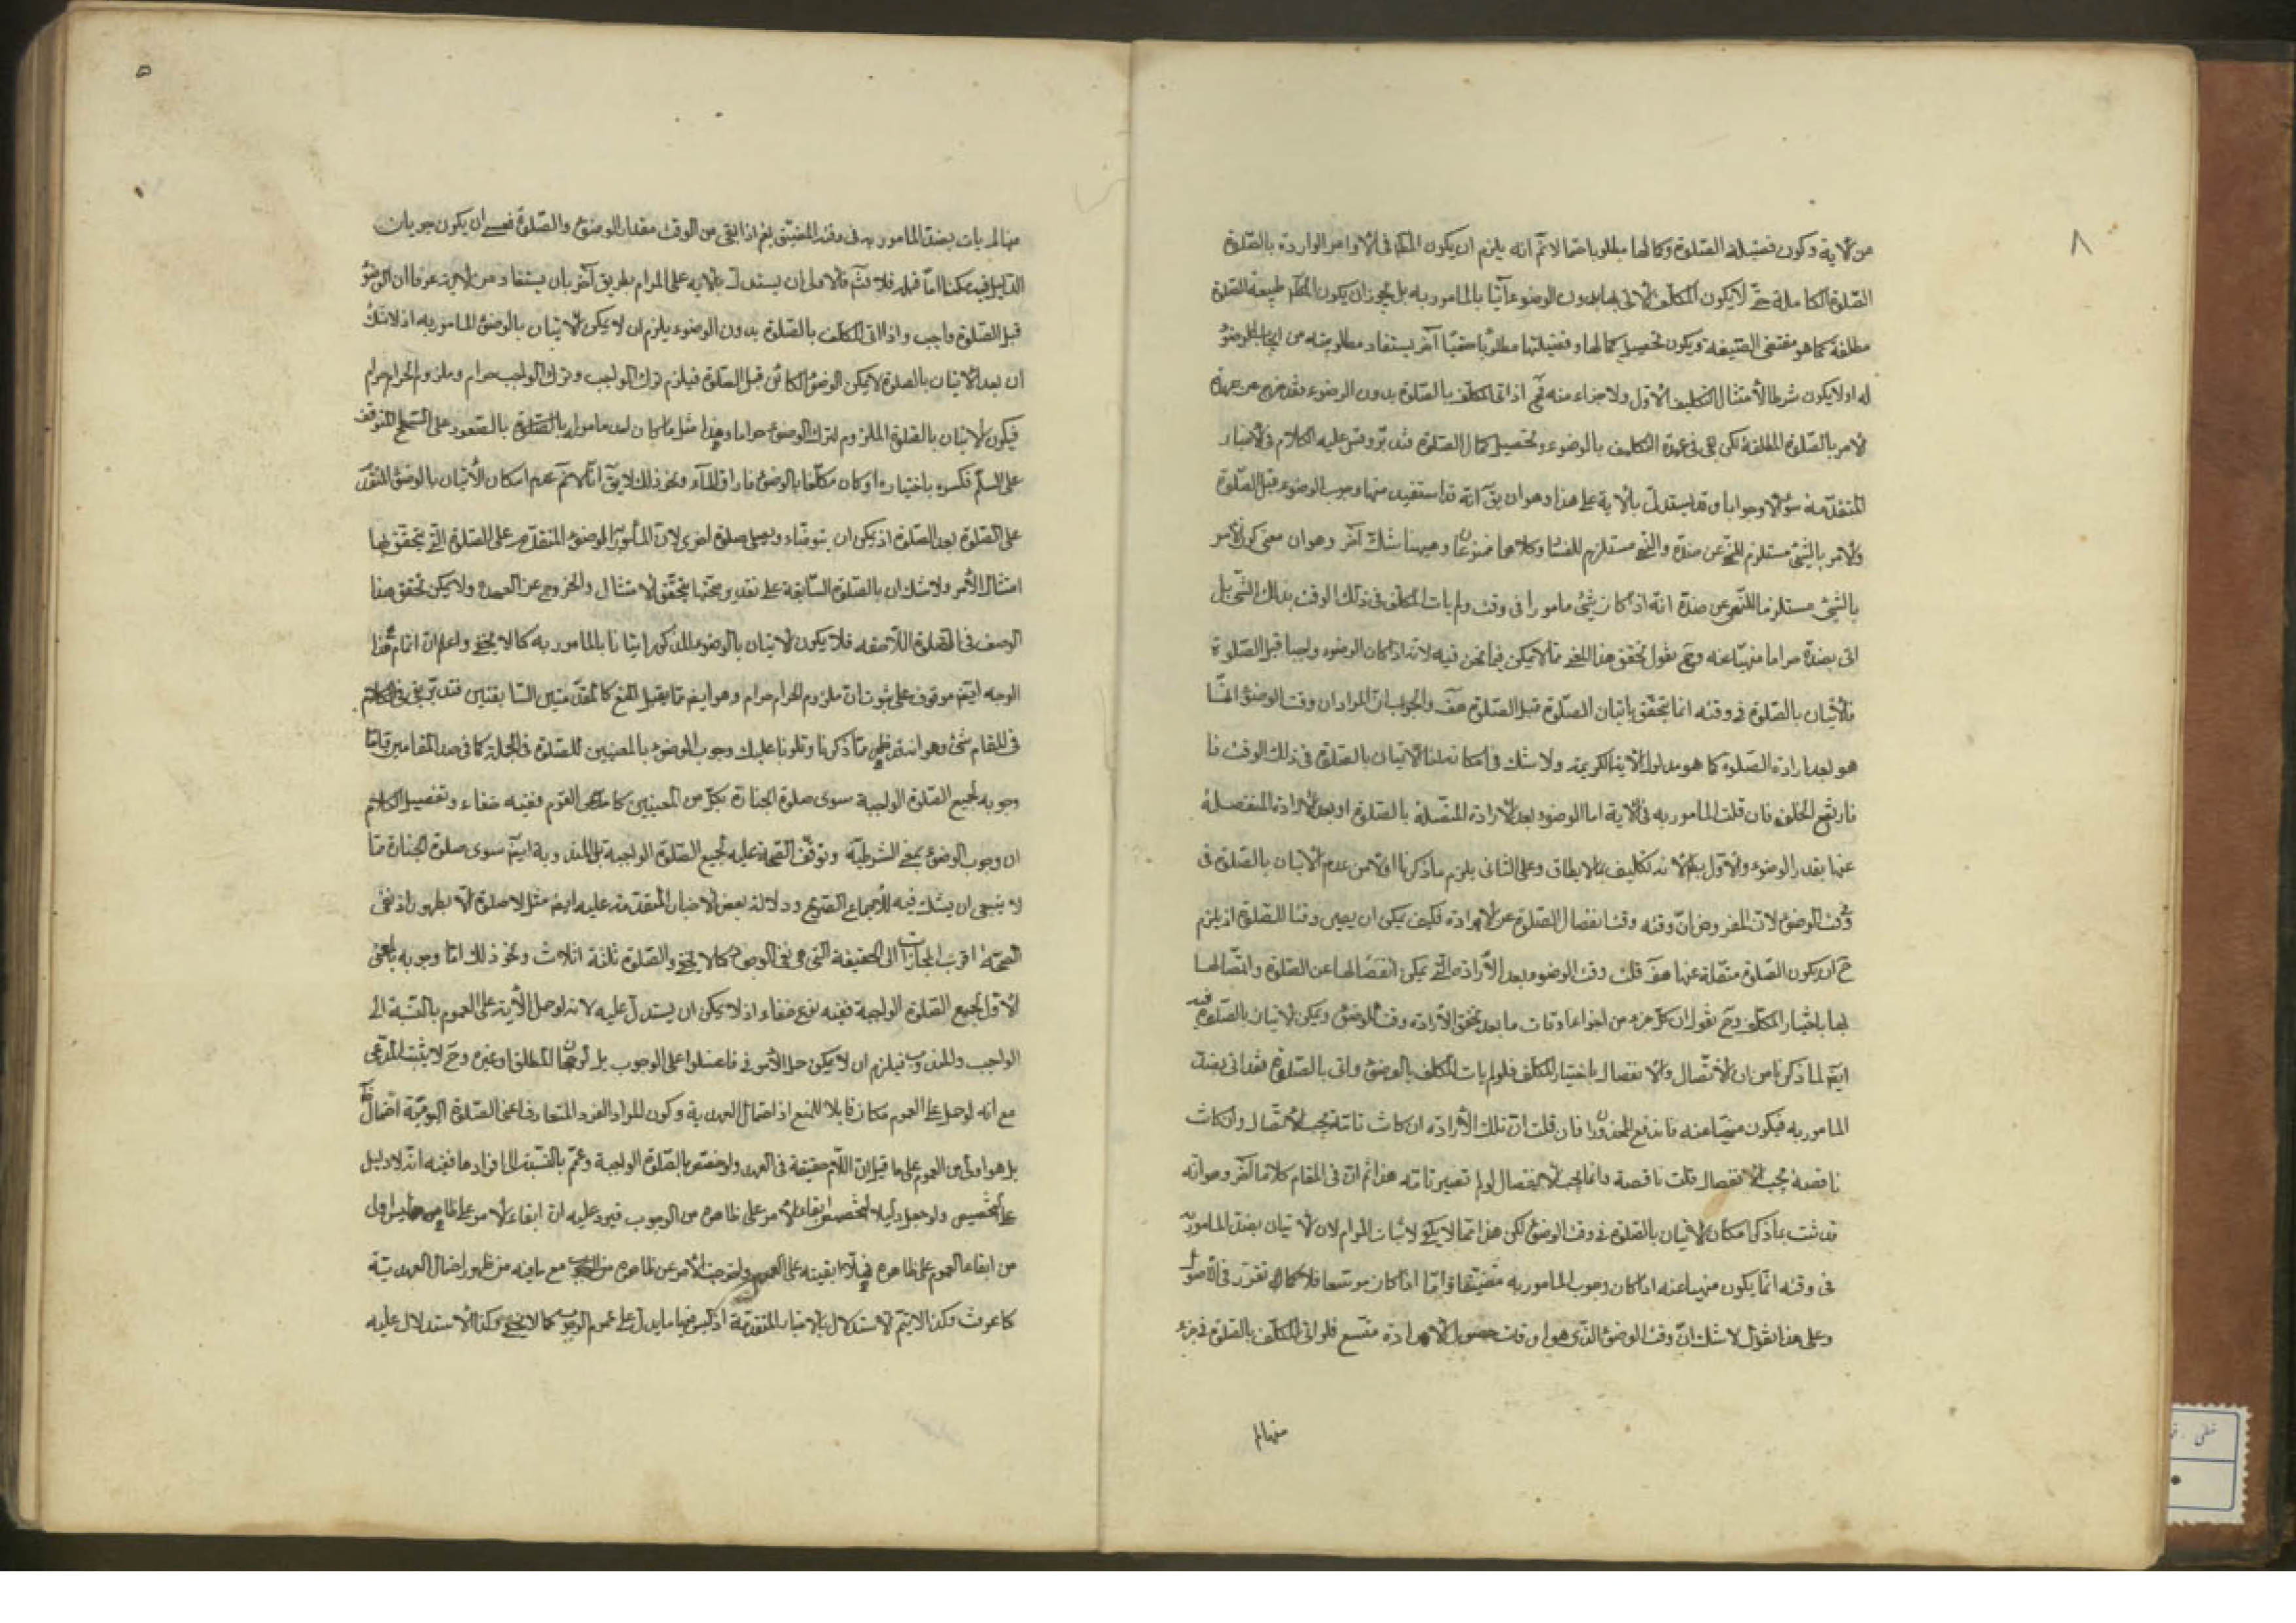 ٨
من الآية وكون فضيلة الصلوة وكمالها مطلوبا حتما لا ثم انه يلزم ان يكون المكلف في الاوامر الواردة بالصلوة
الصلوة الكاملة حتى لا يكون المكلف الآتي بها بدون الوضوء آتيا بالمامور به بل يجوز ان يكون المكلف طبيعة الصلوة
مطلقة كما هو مقتضى الصيغة ويكون تحصيل كمالها وفضيلتها مطلوبا حتميا آخر يستفاد مطلوبيته من ايجاب الوضوء
له او لا يكون شرطا لامتثال التكليف الاول ولا جزاء منه فح اذا اتى المكلف بالصلوة بدون الوضوء فقد خرج عن عهدة
الامر بالصلوة المطلقة لكن بقى في عهدة التكليف بالوضوء وتحصيل كمال الصلوة فتدبر وقس عليه الكلام في الاخبار
المتقدمة سؤالا وجوابا وقد يستدل بالآية على هذا وهو ان يق انه قد استفيد منها وجوب الوضوء قبل الصلوة
والامر بالشئ مستلزم للنهى عن ضده والنهى مستلزم للفساد وكلاهما ممنوعان وهيهنا شك آخر وهو ان معنى كون الامر
بالشئ مستلزما للنهى عن ضده انه اذا كان شئ مامورا في وقت ولم يات المكلف في ذلك الوقت بذلك الشئ بل
اتى بضده حراما منهيا عنه وح نقول تحقق هذا المعنى مما لا يمكن فيما نحن فيه لانه اذا كان الوضوء واجبا قبل الصلوة
فالاتيان بالصلوة في وقته انما يتحقق باتيان الصلوة قبل الصلوة هف والجواب ان المراد ان وقت الوضوء انما
هو بعد ارادة الصلوة كما هو مدلول الآية الكريمة ولا شك في امكان الاتيان بالصلوة في ذلك الوقت فا
فارتفع الخلف فان قلت المامور به في الآية اما الوضوء بعد الارادة المتصلة بالصلوة او بعد الارادة المنفصلة
عنها بقدر الوضوء والاول بط لانه تكليف بما لا يطاق وعلى الثاني يلزم ما ذكرنا اولا من عدم الاتيان بالصلوة في
وقت الوضوء لان المفروض ان وقته وقت انفصال الصلوة عن الارادة فكيف يمكن ان يصير وقتا للصلوة اذ يلزم
ح ان يكون الصلوة متصلة عنها هف قلت وقت الوضوء بعد الارادة التي يمكن انفصالها عن الصلوة واتصالها
بها باختيار المكلف وح نقول ان كل جزء من اجزاء اوقات ما بعد تحقق الارادة وقت الوضوء ويمكن الاتيان بالصلوة فيه
ايضا لما ذكرنا من ان الاتصال والانفصال باختيار المكلف فلو لم يات المكلف بالوضوء واتى بالصلوة فقد اتى بضد
المامور به فيكون منهيا عنه فاندفع المحذوران فان قلت ان تلك الارادة ان كانت تامة يجب الاتصال وان كانت
ناقصة يجب الانفصال قلت ناقصة وانما يجب الانفصال لو لم تصير تامة هذا ثم ان في المقام كلاما آخر وهو انه
قد ثبت بما ذكر امكان الاتيان بالصلوة في وقت الوضوء لكن هذا مما لا يكفي لاثبات المرام لان الاتيان بضد المامور به
في وقته انما يكون منهيا عنه اذا كان وجوب المامور به مضيقا واما اذا كان موسعا فلا كما تقرر في الاصول
وعلى هذا نقول لا شك ان وقت الوضوء الذي هو اوقات حصول الارادة متسع فلو اتى المكلف بالصلوة في جزء
منها لم
٥
منها لم يات بضد المامور به في وقته المضيق نعم اذا بقى من الوقت مقدار الوضوء والصلوة فعسى ان يكون جريان
الدليل فيه ممكنا اما قبله فلا فثم فالاولى ان يستدل بالآية على المرام بطريق آخر بان يستفاد من الآية عرفا ان الوضوء
قبل الصلوة واجب واذا اتى المكلف بالصلوة بدون الوضوء يلزم ان لا يمكن الاتيان بالوضوء المامور به اذ لا شك
ان بعد الاتيان بالصلوة لا يمكن الوضوء الكائن قبل الصلوة فيلزم ترك الواجب وترك الواجب حرام وملزوم الحرام حرام
فيكون الاتيان بالصلوة الملزوم لترك الوضوء حراما وهذا مثل ما كان احد مامورا بالصعود على السطح المتوقف
على السلم فكسره باختياره او كان مكلفا بالوضوء فاراق الماء ونحو ذلك لا يق انا لا نم عدم امكان الاتيان بالوضوء المتقدم
على الصلوة بعد الصلوة اذ يمكن ان يتوضاء ويصلى صلوة اخرى لان المأمور الوضوء المتقدم على الصلوة التي يتحقق بها
امتثال الأمر ولا شك ان بالصلوة السابقة على تقدير صحتها يتحقق الامتثال والخروج عن العهدة ولا يمكن تحقق هذا
الوصف في الصلوة اللاحقة فلا يكون الاتيان بالوضوء المذكور اتيانا بالمامور به كما لا يخفى واعلم ان اتمام هذا
الوجه ايضا موقوف على ثبوت ان ملزوم الحرام حرام وهو ايضا مما يقبل المنع كالمقدمتين السابقتين فتدبر بقى في الكلام
في المقام شئ وهو انه قد ظهر مما ذكرنا وتلونا عليك وجوب الوضوء بالمعنيين للصلوة في الجملة كما في صدر المقامين واما
وجوبه لجميع الصلوة الواجبة سوى صلوة الجنازة بكل من المعنيين كما هو مدعى القوم ففيه خفاء وتفصيل الكلام
ان وجوب الوضوء بمعنى الشرطية وتوقف الصحة عليه لجميع الصلوة الواجبة بل المندوبة ايضا سوى صلوة الجنازة مما
لا ينبغي ان يشك فيه للاجماع القطعي ودلالة بعض الاخبار المتقدمة عليه ايضا مثل لا صلوة الا بطهور اذ نفى
الصحة اقرب المجازات الى الحقيقة التي هي نفى الوجود كما لا يخفى والصلوة ثلثة اثلاث ونحو ذلك اما وجوبه بالمعنى
الاول لجميع الصلوة الواجبة ففيه نوع خفاء اذ لا يمكن ان يستدل عليه لانه لو حمل الآية على العموم بالنسبة الى
الواجب والمندوب فيلزم ان لا يمكن حمل الأمر في فاغسلوا على الوجوب بل الرجحان المطلق او غيره وح لا يثبت المدعى
مع انه لو حمل على العموم فكان قابلا للمنع اذ احتمال العهدية وكون المراد الفرد المتعارف اعنى الصلوة اليومية احتمال ظاهر
بل هو اولى من العموم على ما قيل ان اللام حقيقة في العهد ولو خصص بالصلوة الواجبة وعمم بالنسبة الى افرادها ففيه انه لا دليل
على التخصيص ولو جعل دليلا للتخصيص ابقاء الامر على ظاهره من الوجوب فيرد عليه ان ابقاء الامر على ظاهره ليس اولى
من ابقاء العموم على ظاهره فهلا ابقيته على العموم واخرجت الأمر عن ظاهره مع ما فيه من ظهور احتمال العهدية
كما عرفت وكذا لا يتم الاستدلال بالاخبار المتقدمة اذ ليس فيها ما يدل على عموم الوجوب كما لا يخفى وكذا الاستدلال عليه